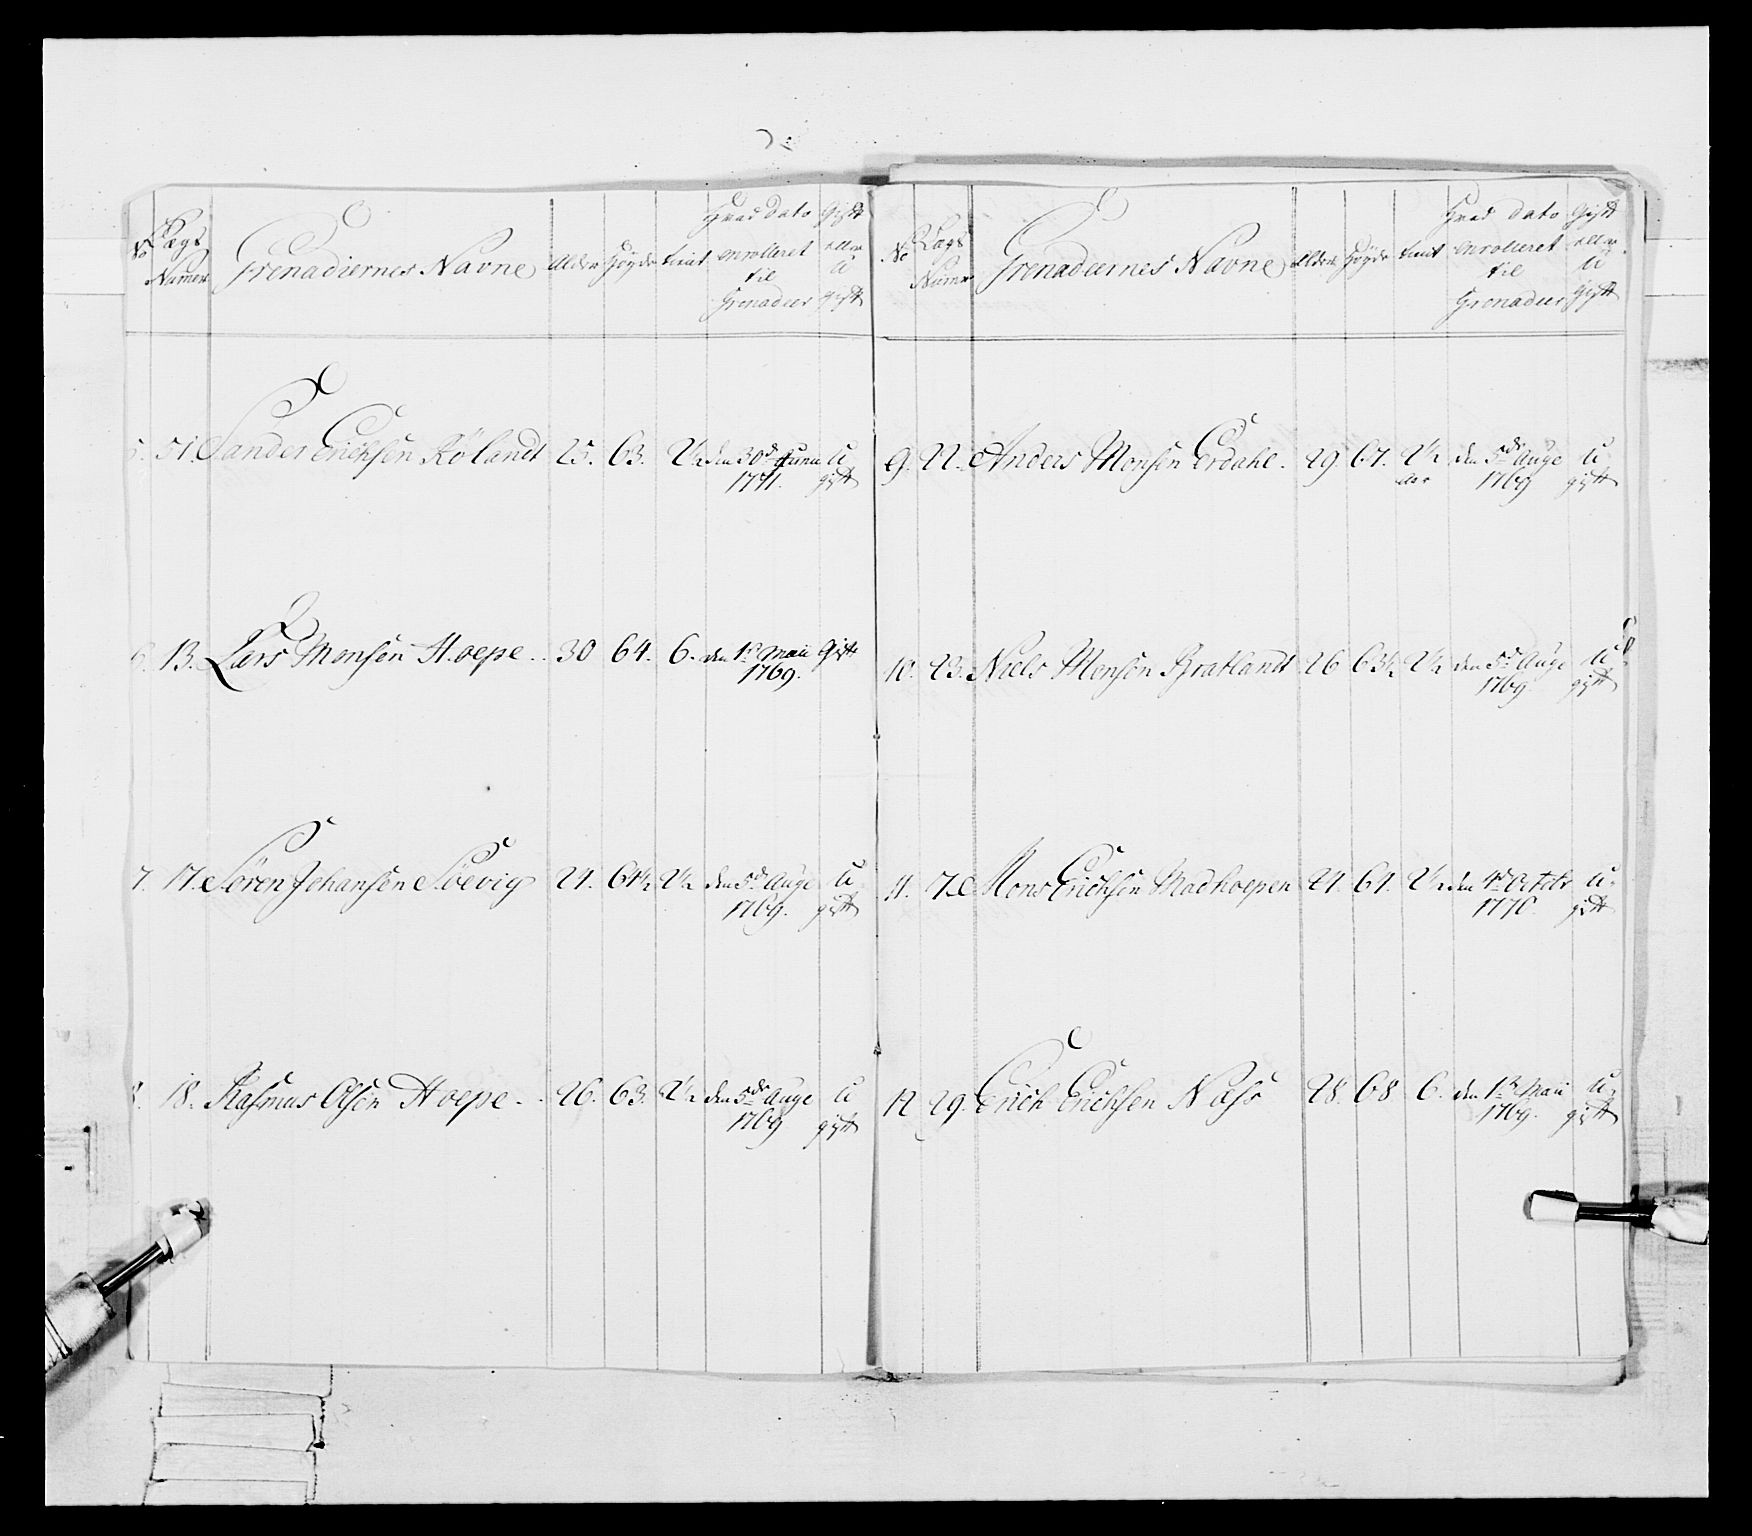 No Lægs Numer Grenadiernes Navne Alder Høyde tient Hvad dato enrolleret til Grenadeer Gift eller U gift
5. 51. Sander Erichsen Røland 25. 63. 2½ den 30d Juni U
1771. gift
6. 13. Lars Monsen Hoepe 30 64. 6. den 1st Maii Gift
1769.
7. 17. Søren Johansen Søevig 24. 64½ 2½ den 5d Aug U
1769. gift
8. 18. Rasmus Olsen Hoepe 26. 63. 2½ den 5de Aug U
1769 gift
No Lægs Numr Grenadeernes Navne Alder Høyde tient Hvad dato enrolleret til Grenadeer Gift eller U Gift
9. 22. Anders Monsen Erdahl. 29. 67. 2½ den 5de Auge U
1769 gift
10. 23. Niels Monsen Bratlandt 26 63½ 2½ den 5d Auge U
1769. gift
11. 7. Mons Erichsen Madhoepen 24. 64. 2½ den 4d Octobr U
1770. gift
12 29. Erich Erichsen Næss 28. 68 6. den 1st Maii U
1769. gift